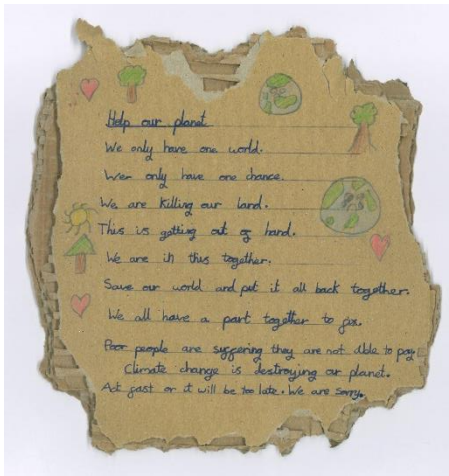 Help our planet
We only have one world.
Wer only have one chance.
We are killing our land.
This is getting out of hand.
We are in this together.
Save our world and put it all back together.
We all have a part together to fix.
Poor people are suffering they are not able to pay.
Climate change is destroying our planet.
Act fast or it will be too late. We are sorry.